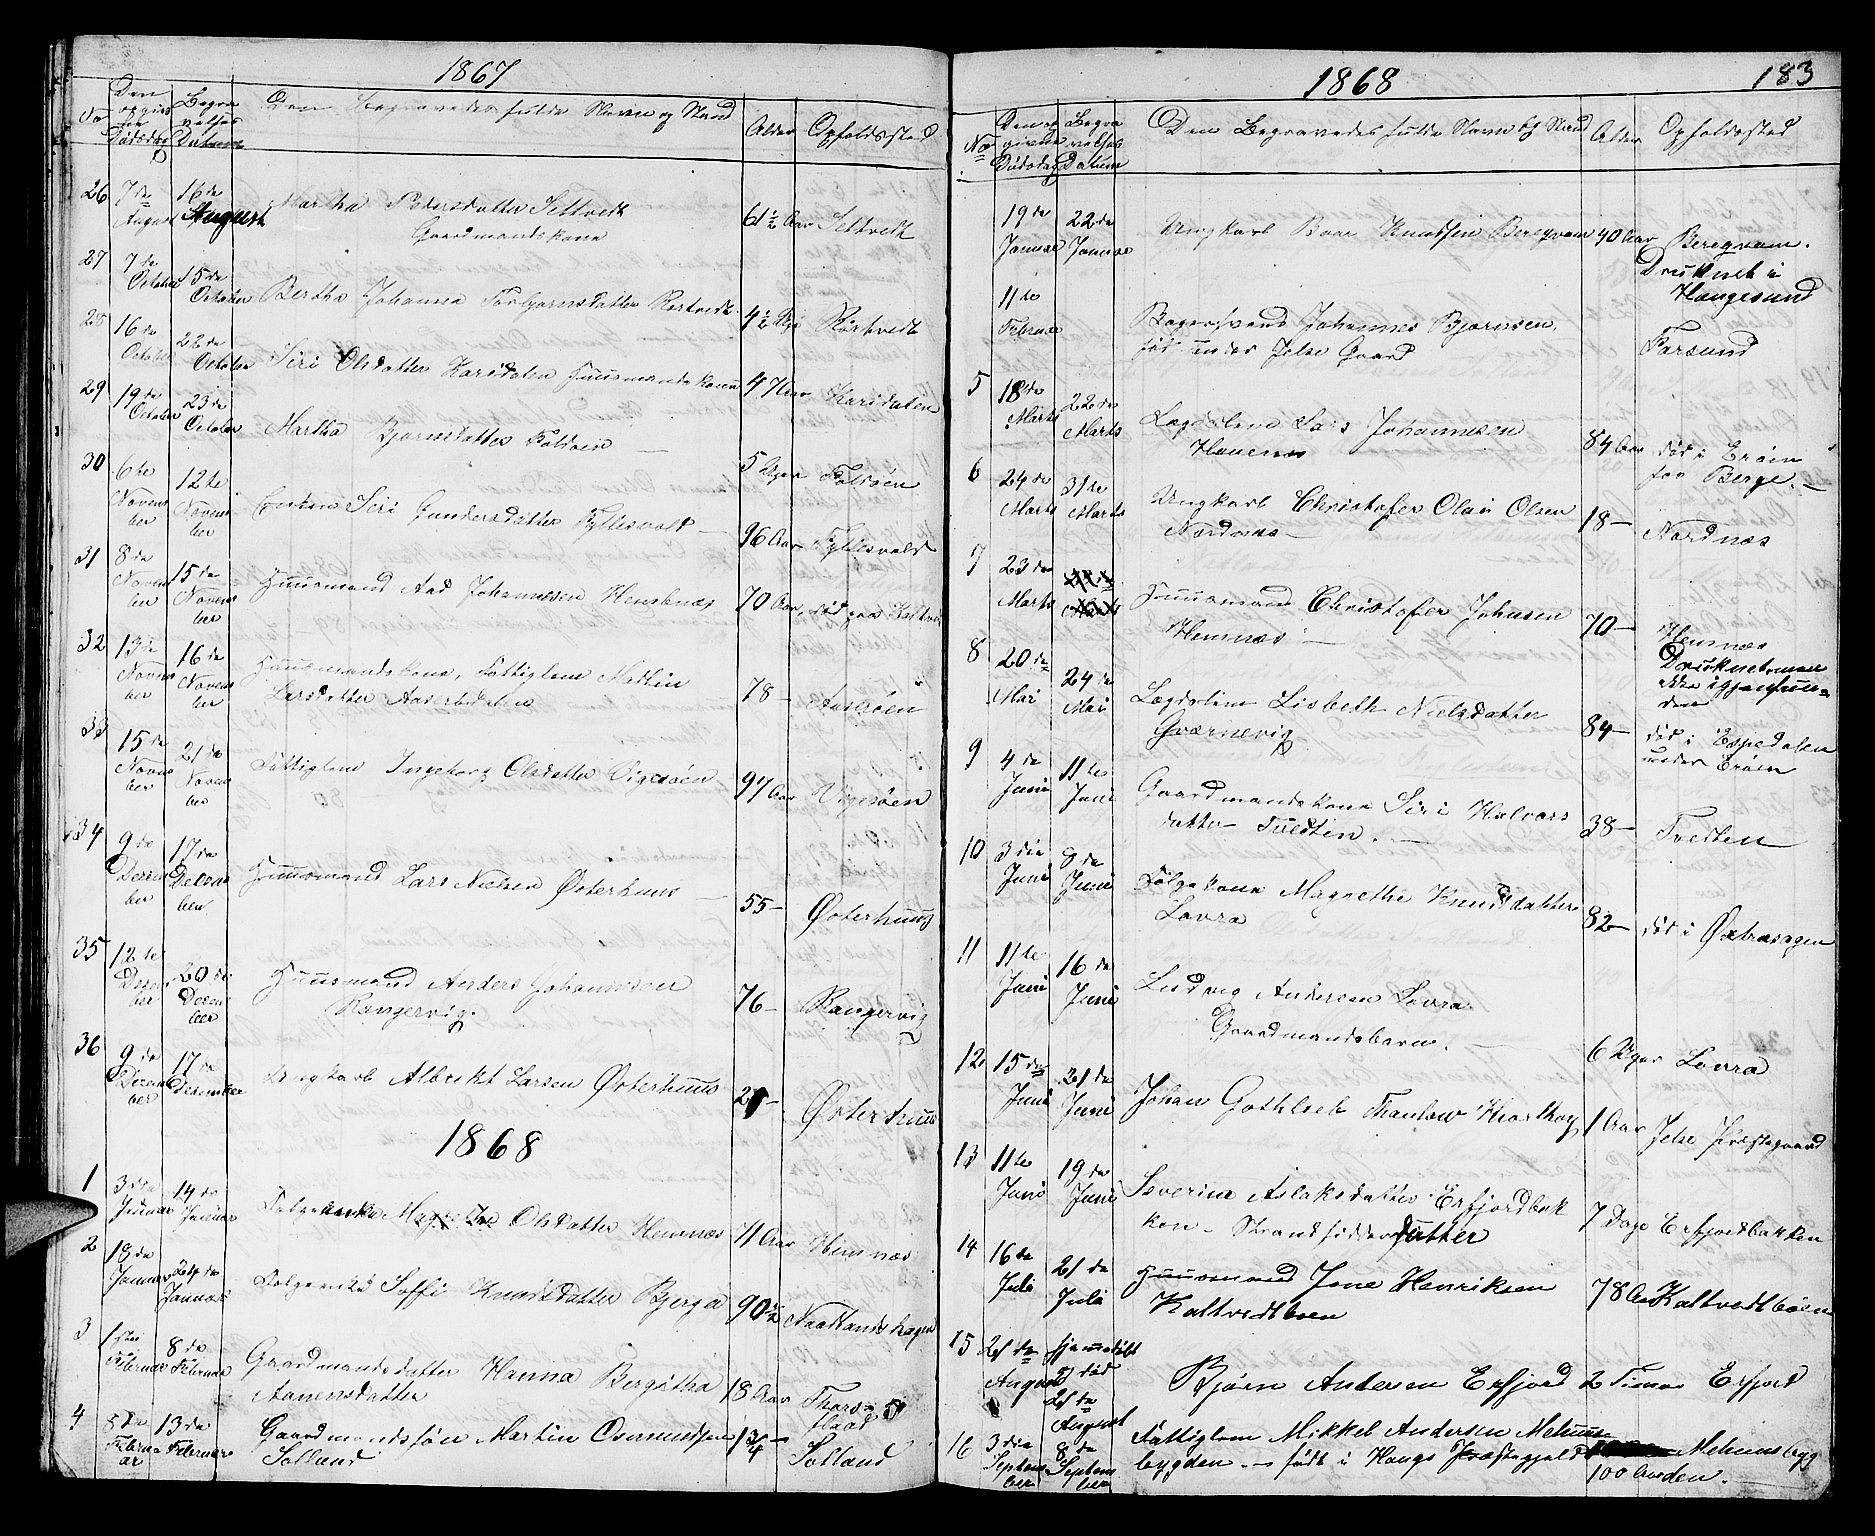 1867
No
Den opgivne Dødsdag
Begravelses Datum
Den Begravedes fulde Navn og Stand
Alder
Opholdssted
26 7de August 16de August Martha Pedersdatter Settvedt 61½ Aar Settvedt
Gaardmandskone
27 7de October 15de October Bertha Johanna Torbjørnsdatter Rørtvedt 4½ Rørtvedt
28 16de October 22de October Siri Olsdatter Karsdalen Huusmandskone 47 Aar Karsdalen
29 19de October 23de October Martha Bjørnsdatter Foldøen 5 Uger Foldøen
30 6te November 12te November Enken Siri Gundersdatter Fyllesvold 96 Aar Fyllesvold
31 8de November 15de November Huusmand Aad Johannesen Hensnæs 70 Aar død paa
32 13de November 16de November Huusmandskone, Fattiglem Mallin
Larsdatter 78 —
33 15de November 21de November Fattiglem Ingeborg Olsdatter Vigesøen 97 Aar Vigesøen
34 9de December 17de December Huusmand Lars Nielsen Østerhuus 55 — Østerhuus
35 12te December 20de December Huusmand Anders Johannesen
Rangervig. 76 — Rangervig
36 9de December 17de December Ungkarl Albrikt Larsen Østerhuus Østerhuus
1868
1 3die Januar 14de Januar Magrethe Olsdatter Hennæs 71 Aar Hennæs
2 18de Januar 24de Januar Soffi Knudsdatter Bjerga 90½ Naatlandshagen
3 1ste Februar 8de Februar Gaardmandsdatter Hanna Bergitha
Aanensdatter 18 Aar
4 5te Februar 13de Februar Gaardmandssøn Martin Osmundsen 1¾ — Sølland
Sølland
1868
183
No
Den opgivne Dødsdag
Begravelses Datum
Den Begravedes fulde Navn og Stand
Alder
Opholdssted
19de Januar 22de Januar Ungkarl Baar Knudsen Beregvam 40 Aar Beregvam.
Druknet i
Haugesund
11te Februar Johannes Bjørnsen,
født under Jelse Gaard Farsund
5 18de Marts 22de Marts Lægdslem Lars Johannesen
84 Aar død i Erøen
for Berge. —
6 24de Marts 31te Marts Ungkarl Christofer Olai Olsen
Nordnæs — 18 — Nordnæs
7 23de Marts Huusmand Christofer Johnsen
Hennæs — 70 — Hennæs
Druknet men
ikke igjenfunden
8 20de Mai 24de Mai Lægdslem Lisbeth Nielsdatter
Qværnevig 84 — død i Espedalen
under Erøen
9 4de Juni 11te Juni Gaardmandskone Siri Halvors
datter Tvedten. — 38 — Tvedten
10 3die Juni 8de Juni Følgekone Magrethe Knudsdatter
Lovra 82 — død i
11 11te Juni 16de Juni Ludvig Andersen Lovra.
Gaardmandsbarn. — 6 Uger Lovra
12 15de Juni 21de Juni Johan Gothlieb Thaulow 1 Aar Jelse Præstegaard
13 11te Juni 19de Juni Severine Aslaksdatter Erfjordbak
ken — Strandsidderdatter 7 Dage Erfjordbakken
14 16de Juli 21de Juli Huusmand Jone Henriksen
Kaltvedtbøen 78 Aar Kaltvedtbøen
15 21de August hjemmedøbt død 21de August Bjørn Andersen Erfjord 2 Timer Erfjord
16 3die September 8de September Fattiglem Mikkel Andersen Mehuus
bygden — født i Haugs Præstegjeld 100 Aar Mehuusbyg
den.